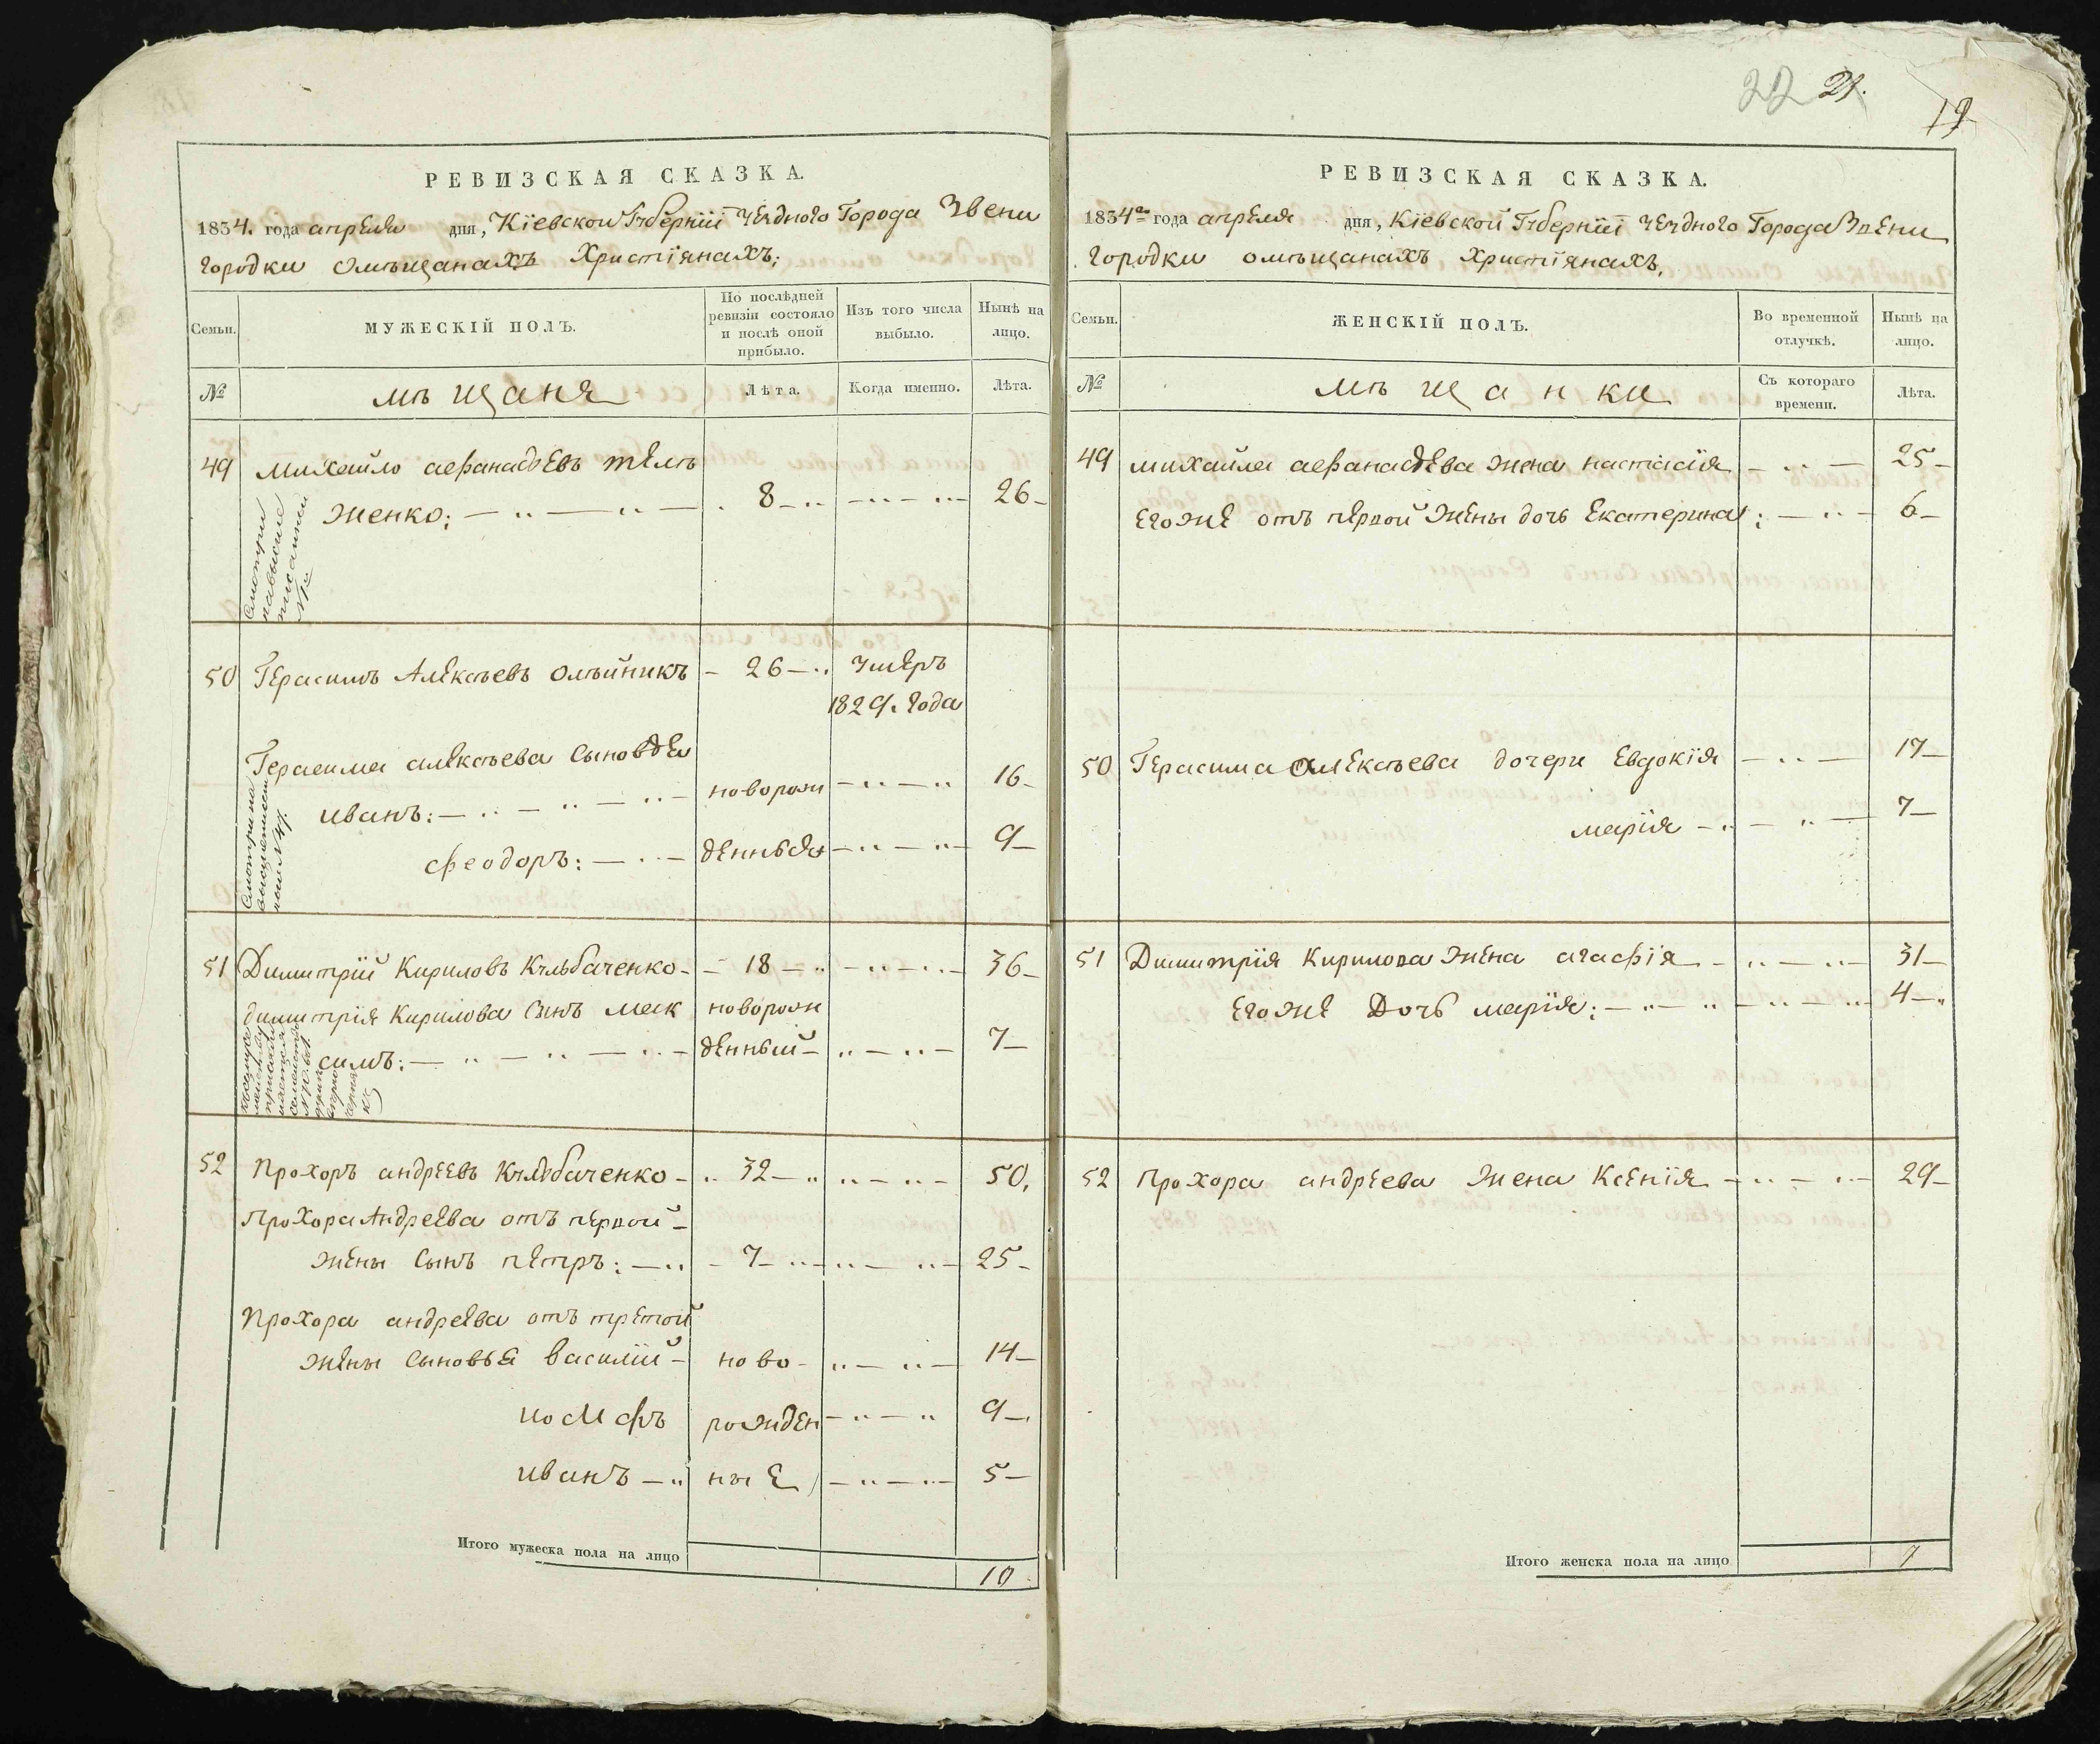 22 21.
19
РЕВИЗСКАЯ СКАЗКА.
1834. года апреля дня, Кіевской Губерніи Уезднаго Города Звени
городки омѣщанахъ Христіянахъ;
Семьи.
МУЖЕСКІЙ ПОЛЪ.
По послѣдней ревизіи состояло и послѣ оной прибыло.
Изъ того числа выбыло.
Нынѣ на лицо.
№
мѣщаня
Лѣта.
Когда именно.
Лѣта.
49 Михайло афанасьевъ телѣ
женко; 8 26
Смотри
50 Герасимъ Алексѣевъ олѣйникъ 26 умеръ
1829. года
Герасима алексѣева сыновья
иванъ: новорож 16
феодоръ: денныя 9
Смотри на
51 Димитрій Кириловъ Кульбаченко 18 36
димитрія Кирилова сынъ мак новорож
симъ: денный 7
52 Прохоръ андреевъ Кульбаченко 32 50.
Прохора Андреева отъ первой
жены сынъ петръ: 7 25
Прохора андреева отъ третой
жены сыновья василій ново 14
иосифъ рожден 9
иванъ ные 5
Итого мужеска пола на лицо
10
РЕВИЗСКАЯ СКАЗКА.
1834го года апреля дня, Кіевской Губерніи Уезднаго Города Звени
городки омѣщанахъ Христіянахъ,
Семьи.
ЖЕНСКІЙ ПОЛЪ.
Во временной отлучкѣ.
Нынѣ на лицо.
№
мѣщанки
Съ котораго времени.
Лѣта.
49 михайла афанасьева жена настасія 25
егоже отъ первой жены дочь екатерина; 6
50 Герасима алексѣева дочери Евдокія 17
марія 7
51 Димитрія Кирилова жена агафія 31
егоже Дочь марія; 4
52 прохора андреева жена Ксенія 29
Итого женска пола на лицо
7